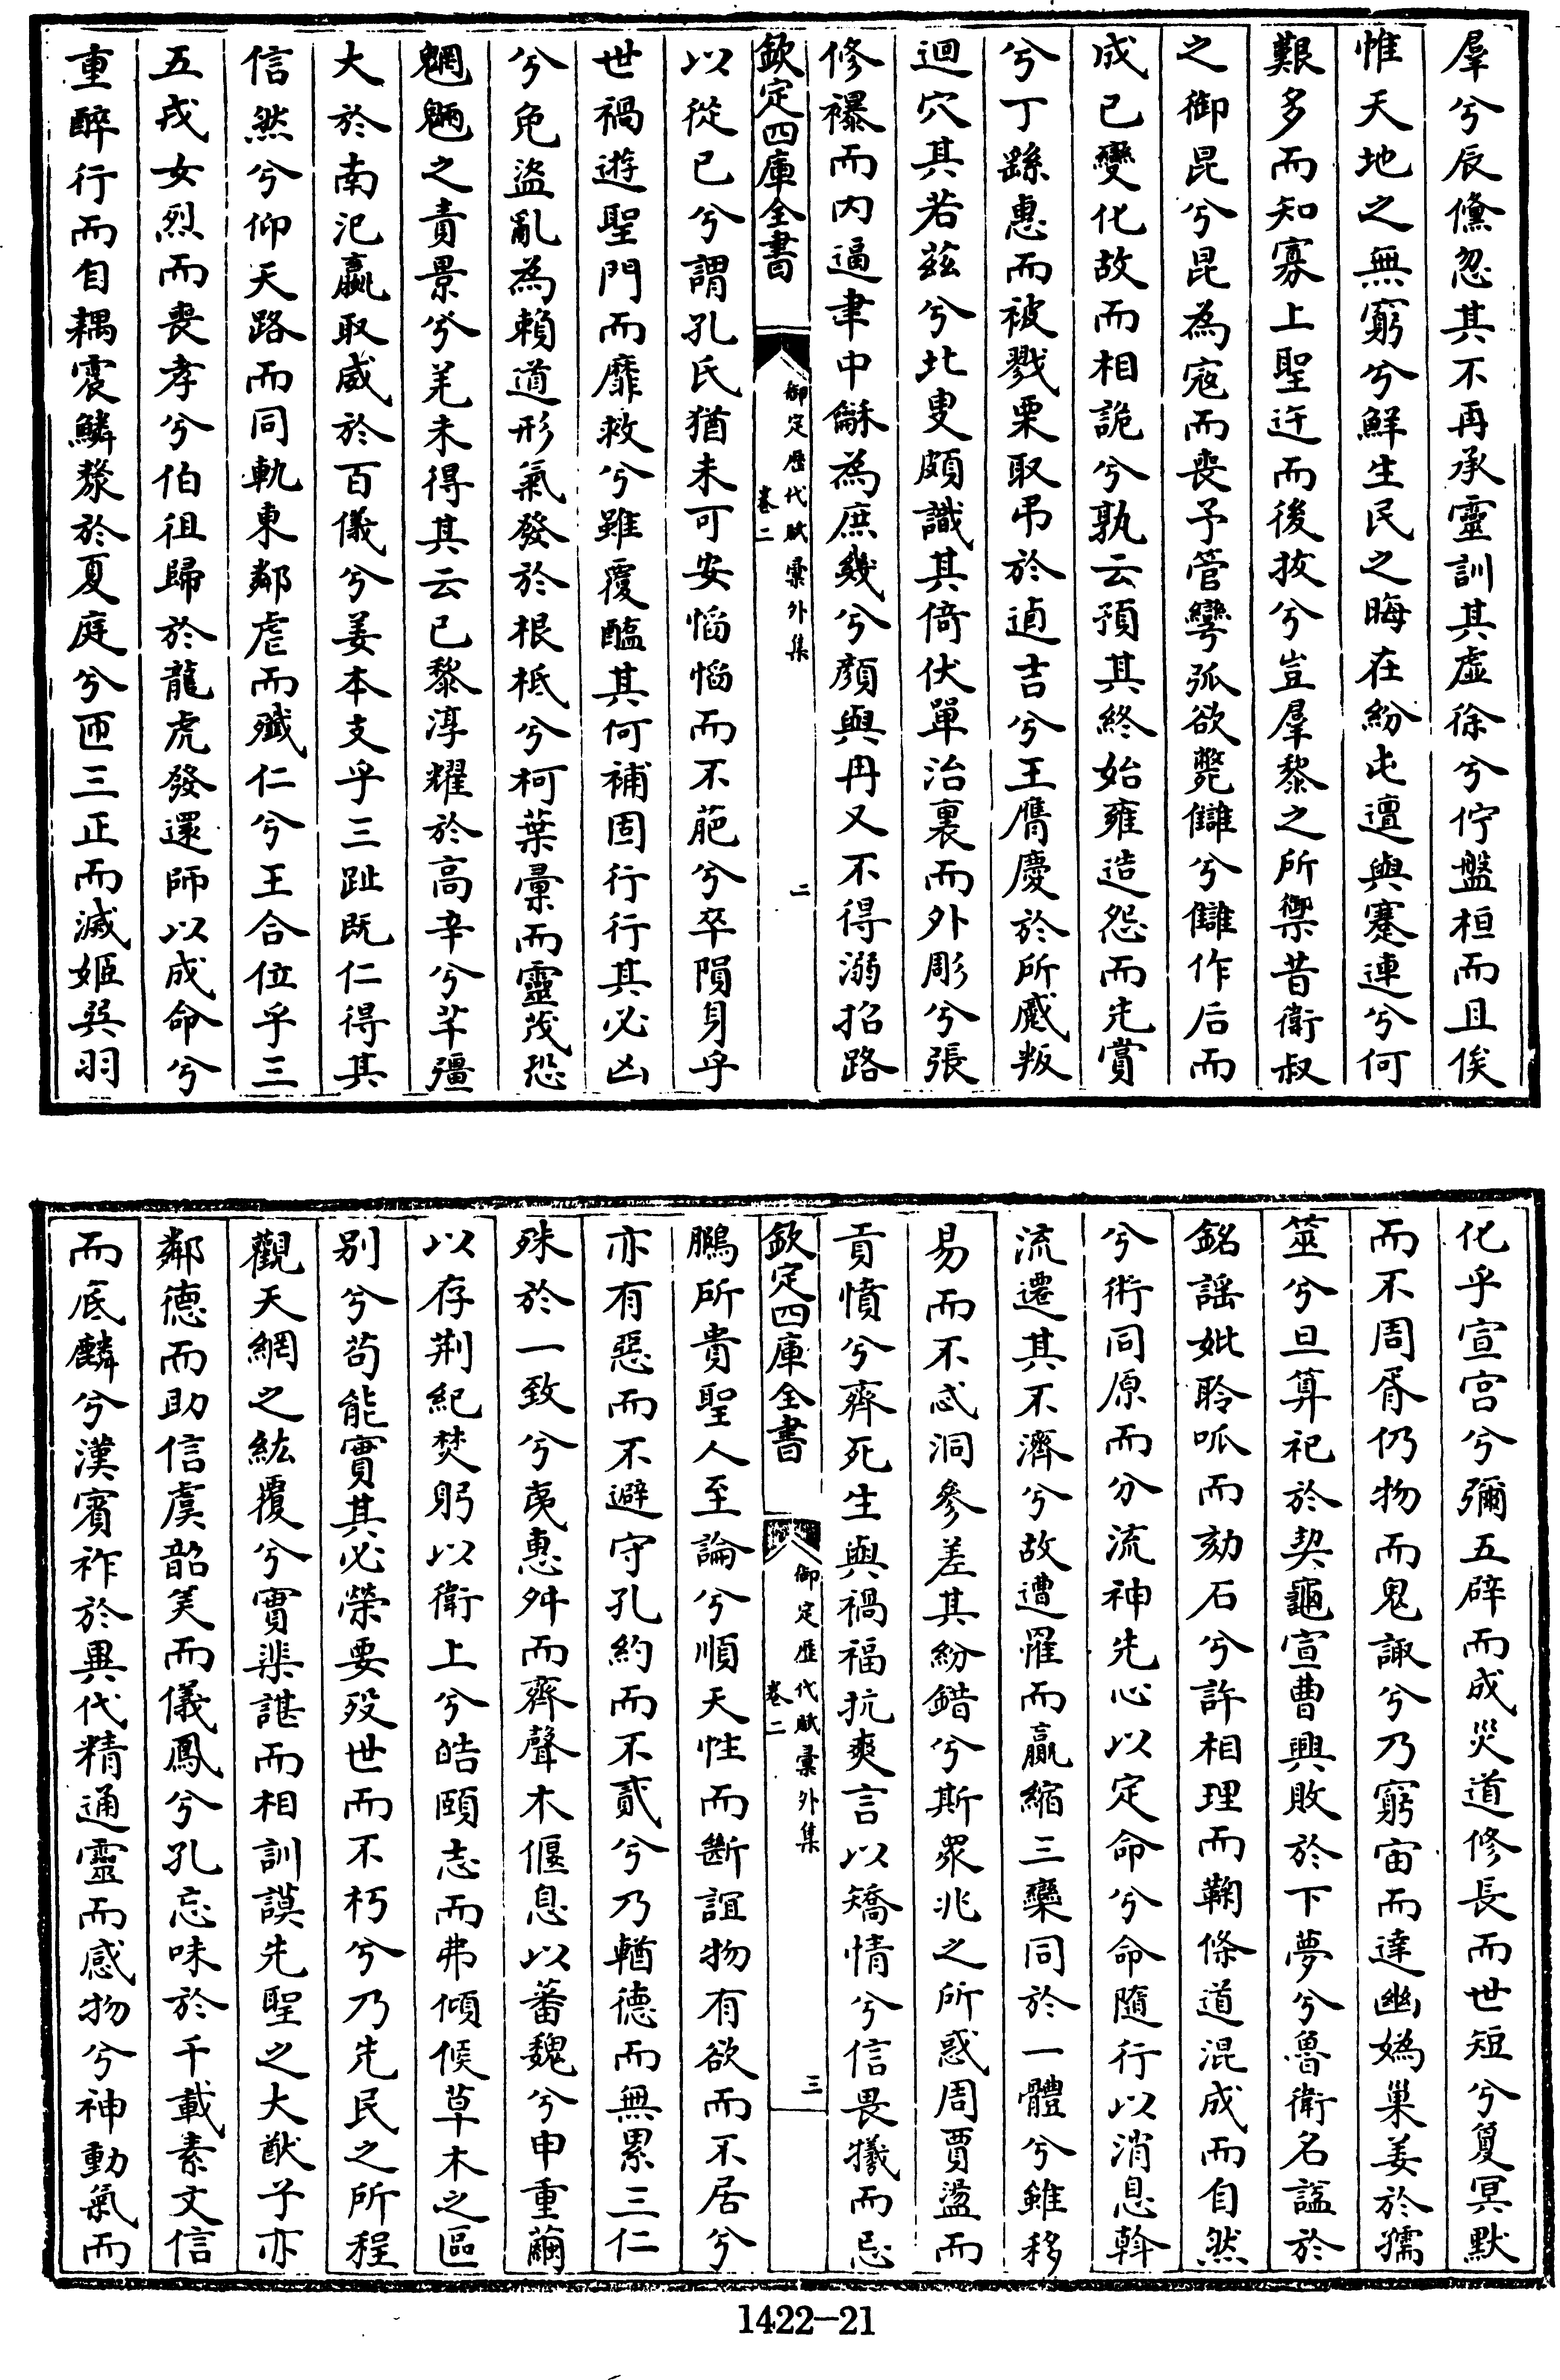 羣兮辰儻忽其不再承靈訓其虚徐兮佇盤桓而且俟
惟天地之無窮兮鮮生民之晦在紛屯邅與蹇連兮何
艱多而知寡上聖迕而後拔兮豈羣黎之所禦昔衛叔
之御昆兮昆為寇而喪予管彎弧欲斃讎兮讎作后而
成已變化故而相詭兮孰云預其終始雍造怨而先賞
兮丁繇惠而被戮栗取弔於逌吉兮王膺慶於所慼叛
迴穴其若兹兮北叟頗識其倚伏單治裏而外彫兮張
修襮而内逼聿中龢為庶幾兮顔與冉又不得溺招路
欽定四庫全書
御定歷代賦彙外集
卷二
二
以從已兮謂孔氏猶未可安慆慆而不萉兮卒隕身乎
世禍遊聖門而靡救兮雖覆醢其何補固行行其必凶
兮免盜亂為賴道形氣發於根柢兮柯葉彙而靈茂恐
魍魎之責景兮羌未得其云已黎淳耀於高辛兮芈彊
大於南汜嬴取威於百儀兮姜本支乎三趾既仁得其
信然兮仰天路而同軌東鄰虐而殲仁兮王合位乎三
五戎女烈而喪孝兮伯徂歸於龍虎發還師以成命兮
重醉行而自耦震鱗漦於夏庭兮匝三正而滅姬巽羽
化乎宣宫兮彌五辟而成災道修長而世短兮夐冥默
而不周胥仍物而鬼諏兮乃窮宙而達幽媯巢姜於孺
筮兮旦算祀於契龜宣曹興敗於下夢兮魯衛名謚於
銘謡妣聆呱而劾石兮許相理而鞠條道混成而自然
兮術同原而分流神先心以定命兮命隨行以消息斡
流遷其不濟兮故遭罹而嬴縮三欒同於一體兮雖移
易而不忒洞參差其紛錯兮斯衆兆之所惑周賈盪而
貢憤兮齊死生與禍福抗爽言以矯情兮信畏犧而忌
欽定四庫全書
御定歷代賦彙外集
卷二
三
鵩所貴聖人至論兮順天性而斷誼物有欲而不居兮
亦有惡而不避守孔約而不貳兮乃輶德而無累三仁
殊於一致兮夷惠舛而齊聲木偃息以蕃魏兮申重繭
以存荆紀焚躬以衛上兮皓頤志而弗傾候草木之區
别兮苟能實其必榮要殁世而不朽兮乃先民之所程
觀天網之紘覆兮實棐諶而相訓謨先聖之大猷兮亦
鄰德而助信虞韶美而儀鳳兮孔忘味於千載素文信
而底麟兮漢賓祚於異代精通靈而感物兮神動氣而
1422-21